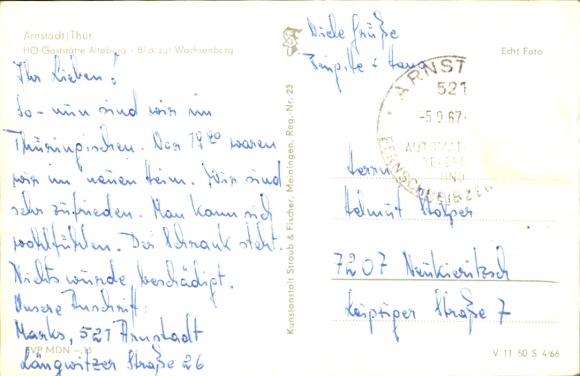 Arnstadt/Thür.
HO-Gaststätte Alteburg - Blick zur Wachsenburg
Ihr Lieben!
So - nun sind wir im
Thüringischen. Vor 19⁰⁰ waren
wir im neuen Heim. Wir sind
sehr zufrieden. Man kann sich
wohlfühlen. Der Schrank steht.
Nichts wurde beschädigt.
Unsere Anschrift:
Marks, 521 Arnstadt
Längwitzer Straße 26
EVP MDN -,15
Kunstanstalt Straub & Fischer, Meiningen, Reg.-Nr. 23
Viele Grüße
Echt Foto
ARNST
521
-5.9.67-
AUTOMAT
UND
FERNSCHREIBZE
Herrn
Helmut
7207 Neukieritzsch
Leipziger Straße 7
V 11 50 S 4/66